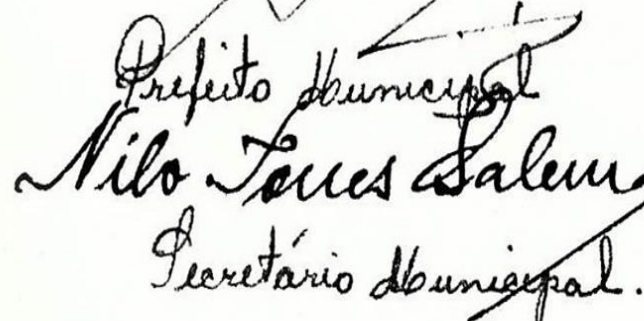 Prefeito Municipal
Nilo Torres Salem
Secretário Municipal.